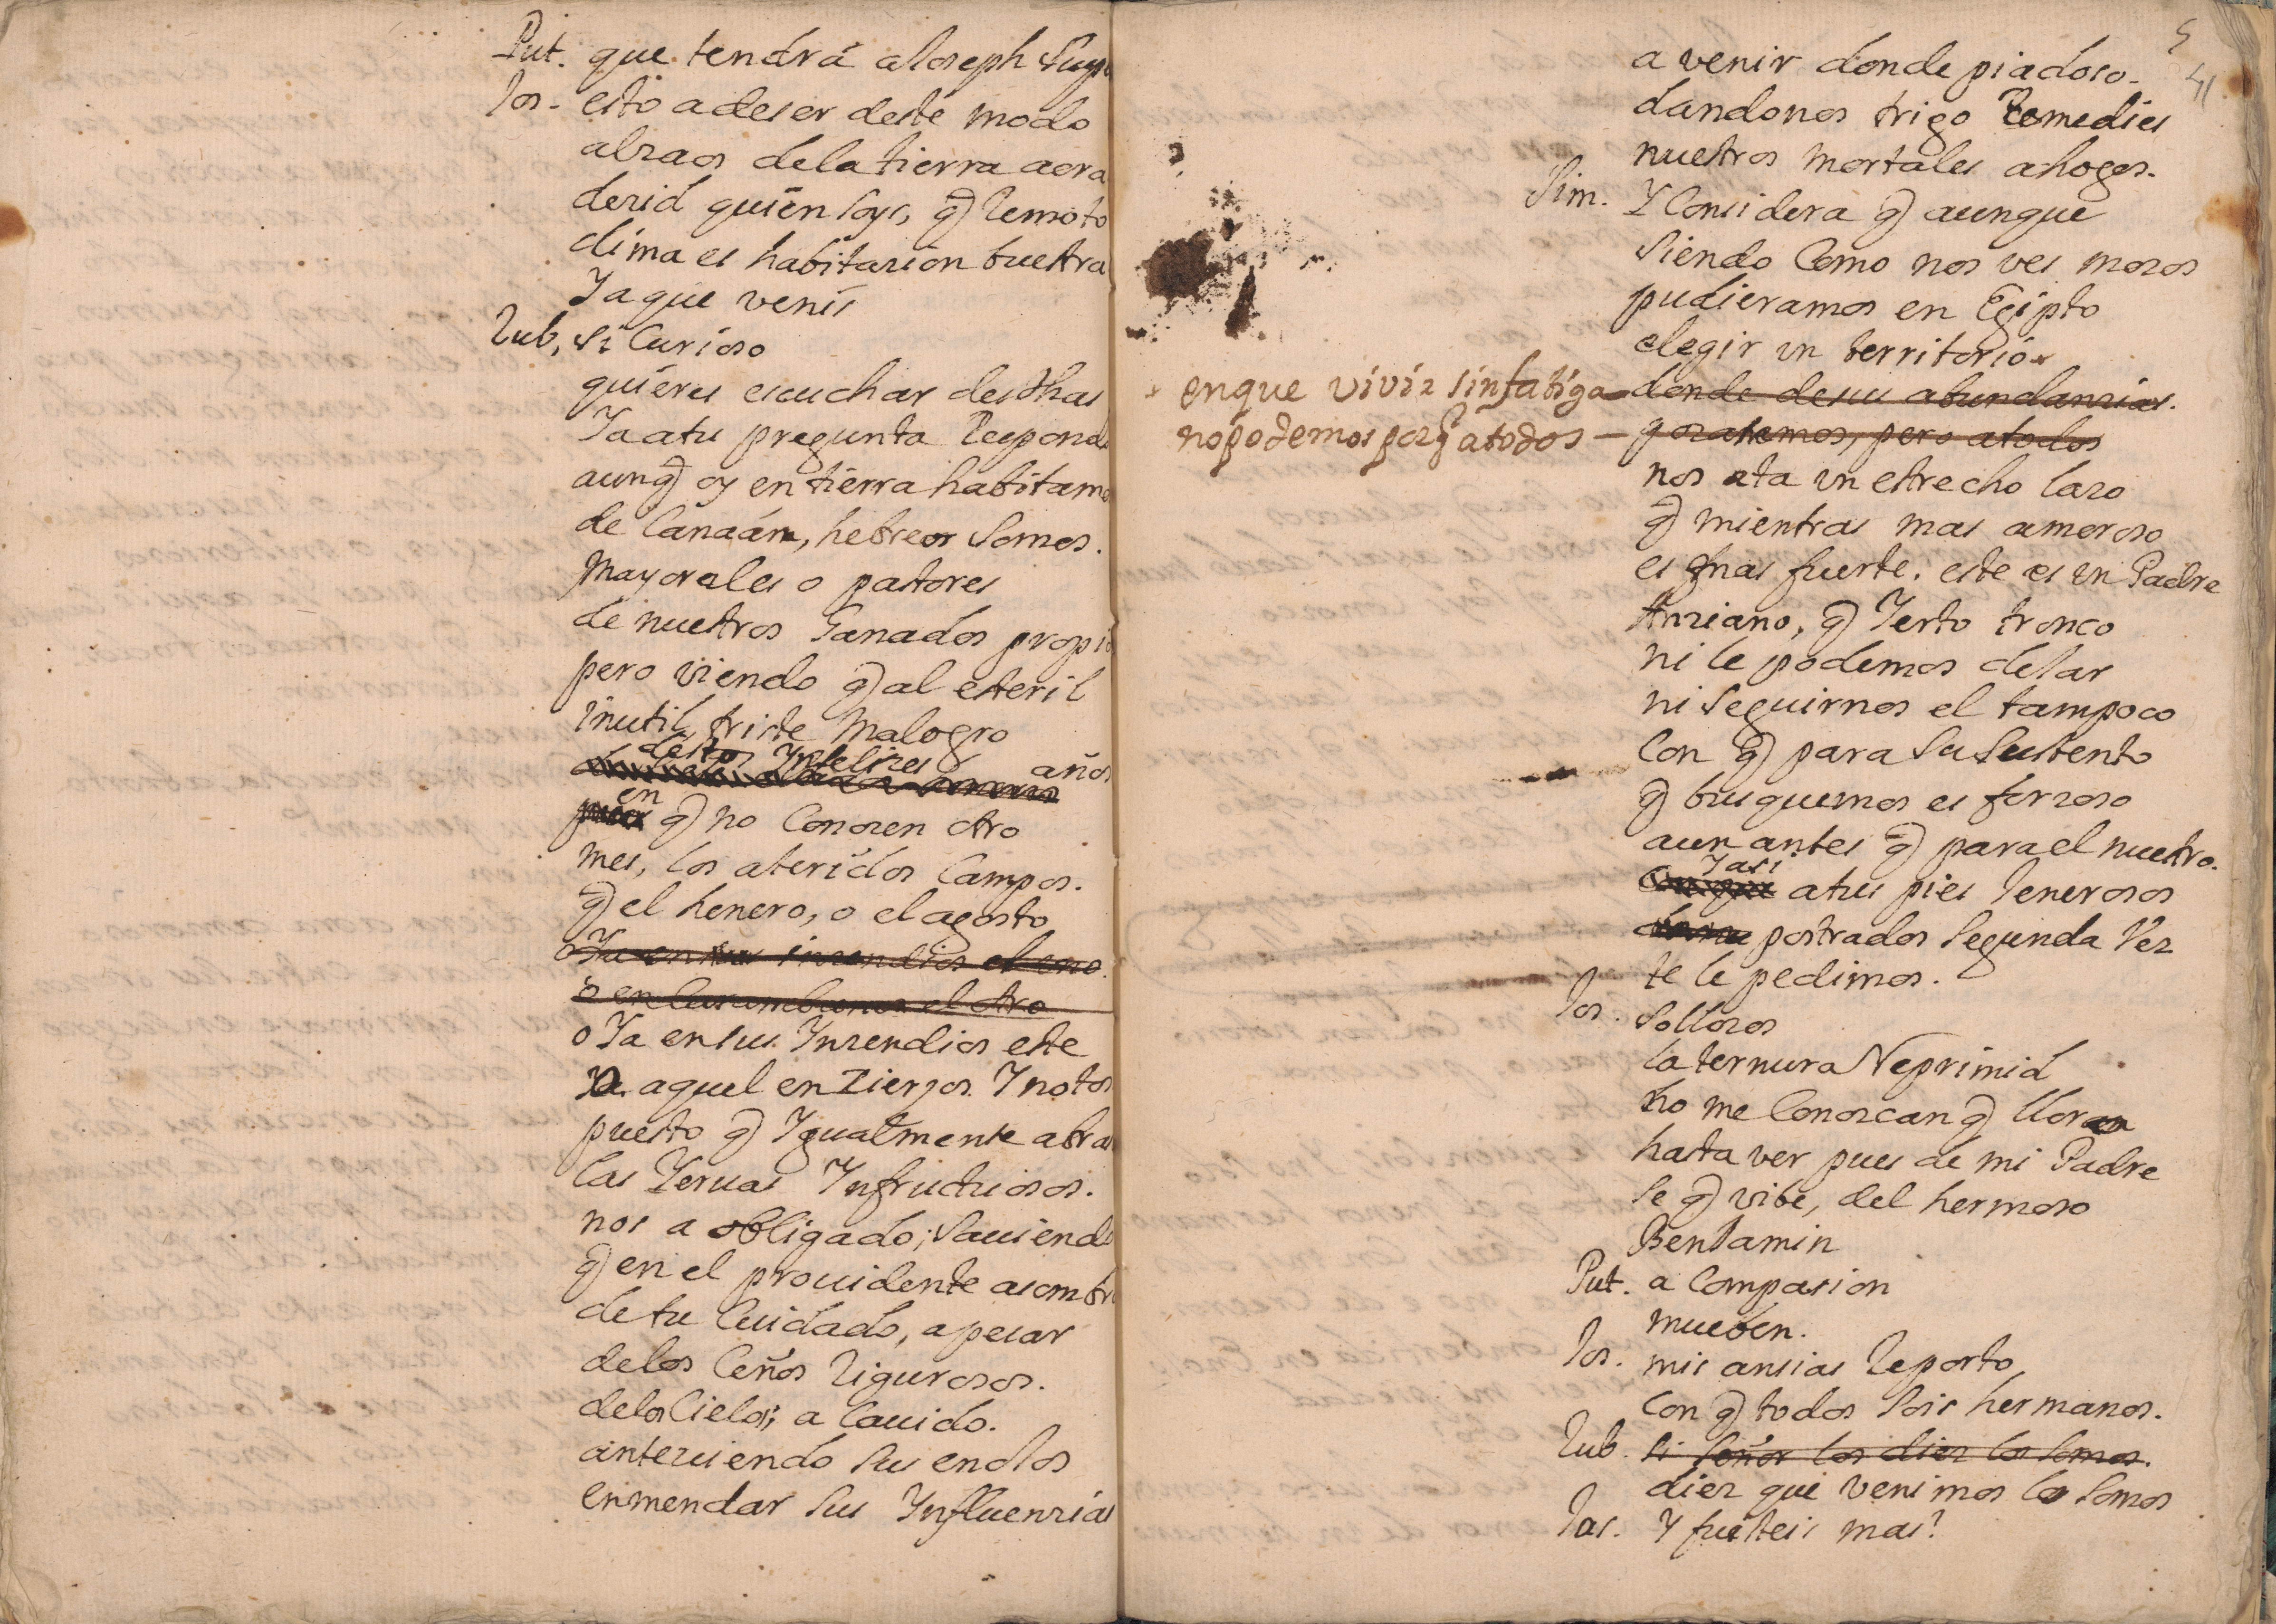 Put. que tendrá a Joseph
Jos. esto a deser deste modo
alzaos dela tierra aora
dezid quien soys, q̃ remoto
clima es habitazion buestra
Ya que venis
Rub. Si Curioso
quieres escuchar desdhas
Ya atu pregunta Respond
aunq̃ oy en tierra habitamo
de Canaán, hebreos Somos.
Mayorales o pastores
de nuestros Ganados propio
pero viendo q̃ al esteril
inutil, triste Malogro
destos Ynfelizes años
en q̃ no Conozen otro
mes, los ateridos Campos.
q̃ el henero, o el agosto
o Ya en sus inzendios el uno.
o en el otro
o Ya ensus Ynzendios este
Ya aquel en Zierzos Y notos
puesto q̃ Ygualmente abra
las Yeruas Ynfructuosos.
nos a obligado; Sauiendo
q̃ en el prouidente asombro
de tu Cuidado, apesar
delos Ceños rigurosos.
delos Cielos; a Cauido.
anteuiendo sus enojos
enmendar sus Ynfluenzias
5
41
a venir donde piadoso.
dandonos trigo Remedies
nuestros mortales ahogos.
Sim. Y Considera q̃ aunque
Siendo Como nos ves mozos
pudieramos en Egipto
elegir un territorio
enque vivir sin fatiga — donde desus abundanzias.
no podemos porq̃ atodos — gozaremos, pero atodos
nos ata un estrecho lazo
q̃ mientras mas amoroso
es mas fuerte. este es un Padre
Anziano, q̃ Yerto tronco
ni le podemos dejar
ni Seguirnos el tampoco
Con q̃ para su Sustento
q̃ busquemos es forzoso
aun antes q̃ para el nuestro.
Yasi atus pies Jenerosos
postrados Segunda Vez
te le pedimos.
Jos. Sollozos
la ternura Reprimid
no me Conozcan q̃ lloro
hasta ver pues de mi Padre
se q̃ vibe, del hermoso
Benjamin
Put. a Compasion
mueben.
Jos. mis ansias Reporto
Con q̃ todos Sois hermanos.
Rub. Si Señor los diez lo Somos.
diez que venimos lo Somos
Jos. Y fuisteis mas?